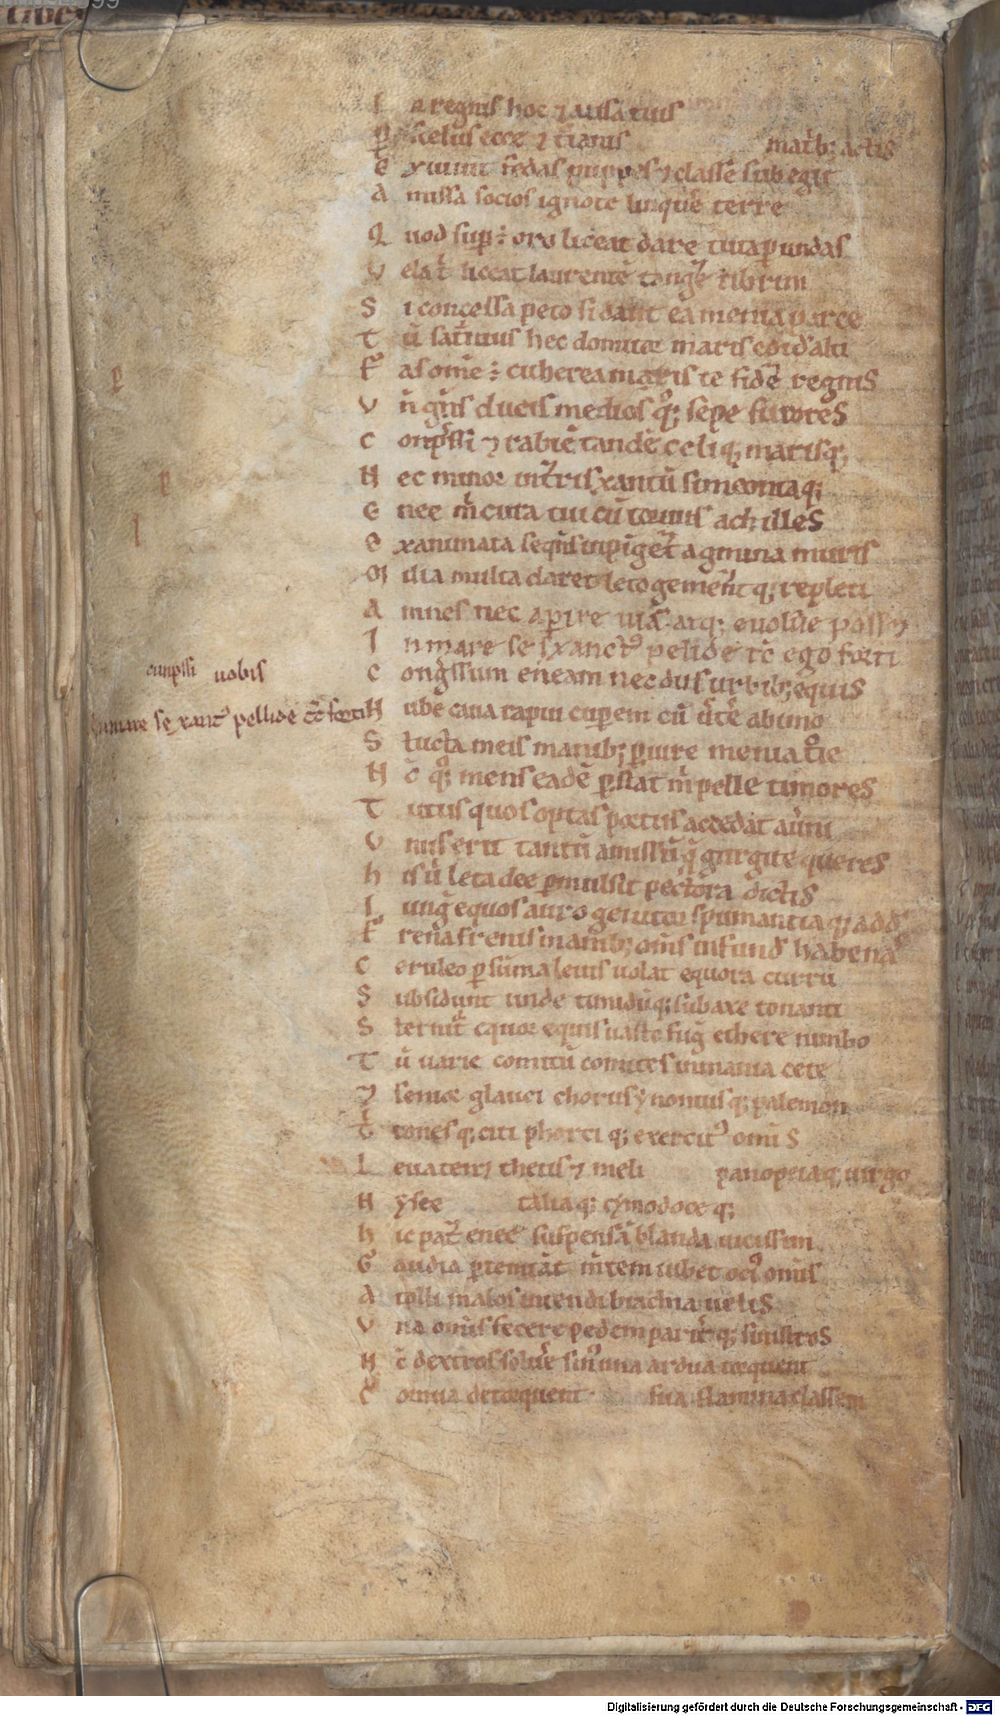 I n regnis hoc ⁊ ausa tuis
P scelus ecce ⁊ t̄ianis matrib; actis
E xuiuit fedas puppes ⁊ classē subegit
A missa socios ignote linquē terre
Q uod sup̄ : oro liceat dare tuta p undas
V ela t̄ liceat laurentē tangē tibrim
S i concessa peto si dant ea menia parce
T ū saturnius hec domitor maris edid alti
F as om̄e : cytherea meis te fidē regnis
V n̄ gn̄s ducis medios q̊; sepe furores
C onp̄ssi ⁊ rabiē tandē celiq; marisq;
N ec minor in tr̄is xantū simoentaq;
E nee m̄ cura tui cū troius achilles
E xanimata seqn̄s inpinget̄ agmina muris
M ilia multa daret leto gemēntq; repleti
A mnes nec apire uiā atq; euoluē poss
I n mare se sxanctꝰ pelide tc̄ ego forti
C ong̊ssum eneam nec dus urbib; equis
cunpssi uobis
In mare se xantꝰ pellide tc̄ forti
N ube caua rapui cuperem cū u̇tē ab imo
S tructa meis manib; piure menia troie
N c̄ q̊; mens eadē pstat m̄ pelle timores
T utus quos optas portus accedat auerni
V nus erit tantū amissū q̄ gurgite queres
h is ū leta dee pmulsit pectora dictis
I ung̊ equos auro genitor spumantiaq; add
F rena frenis manib; om̄s infund habenas
C eruleo p sūma leuis uolat equora curru
S ubsidunt unde tumidūq; sub axe tonanti
S ternit̄ equor equis uasto fug̊ ethere nimbo
T ū uarie comitū comites inmania cete
⁊ senior glauci chorus ynonius q; palemon
T tones q; citi phorci q; exercitꝰ omīs
L eua tenet thetis ⁊ meli panopeiaq; uirgo
N ysee talia q; cymodoce q;
h ic pat̄ enee suspensā blanda uicissim
G audia ptemtāt m̄tem iubet ociꝰ om̄s
A tolli malos intendi brachia uelis
V na om̄s fecere pedem pariē q; sinistros
N c̄ dextros soluē sinꝰ una ardua torquent
C ornua detorquent sua flamina classem
Digitalisierung gefördert durch die Deutsche Forschungsgemeinschaft - DFG